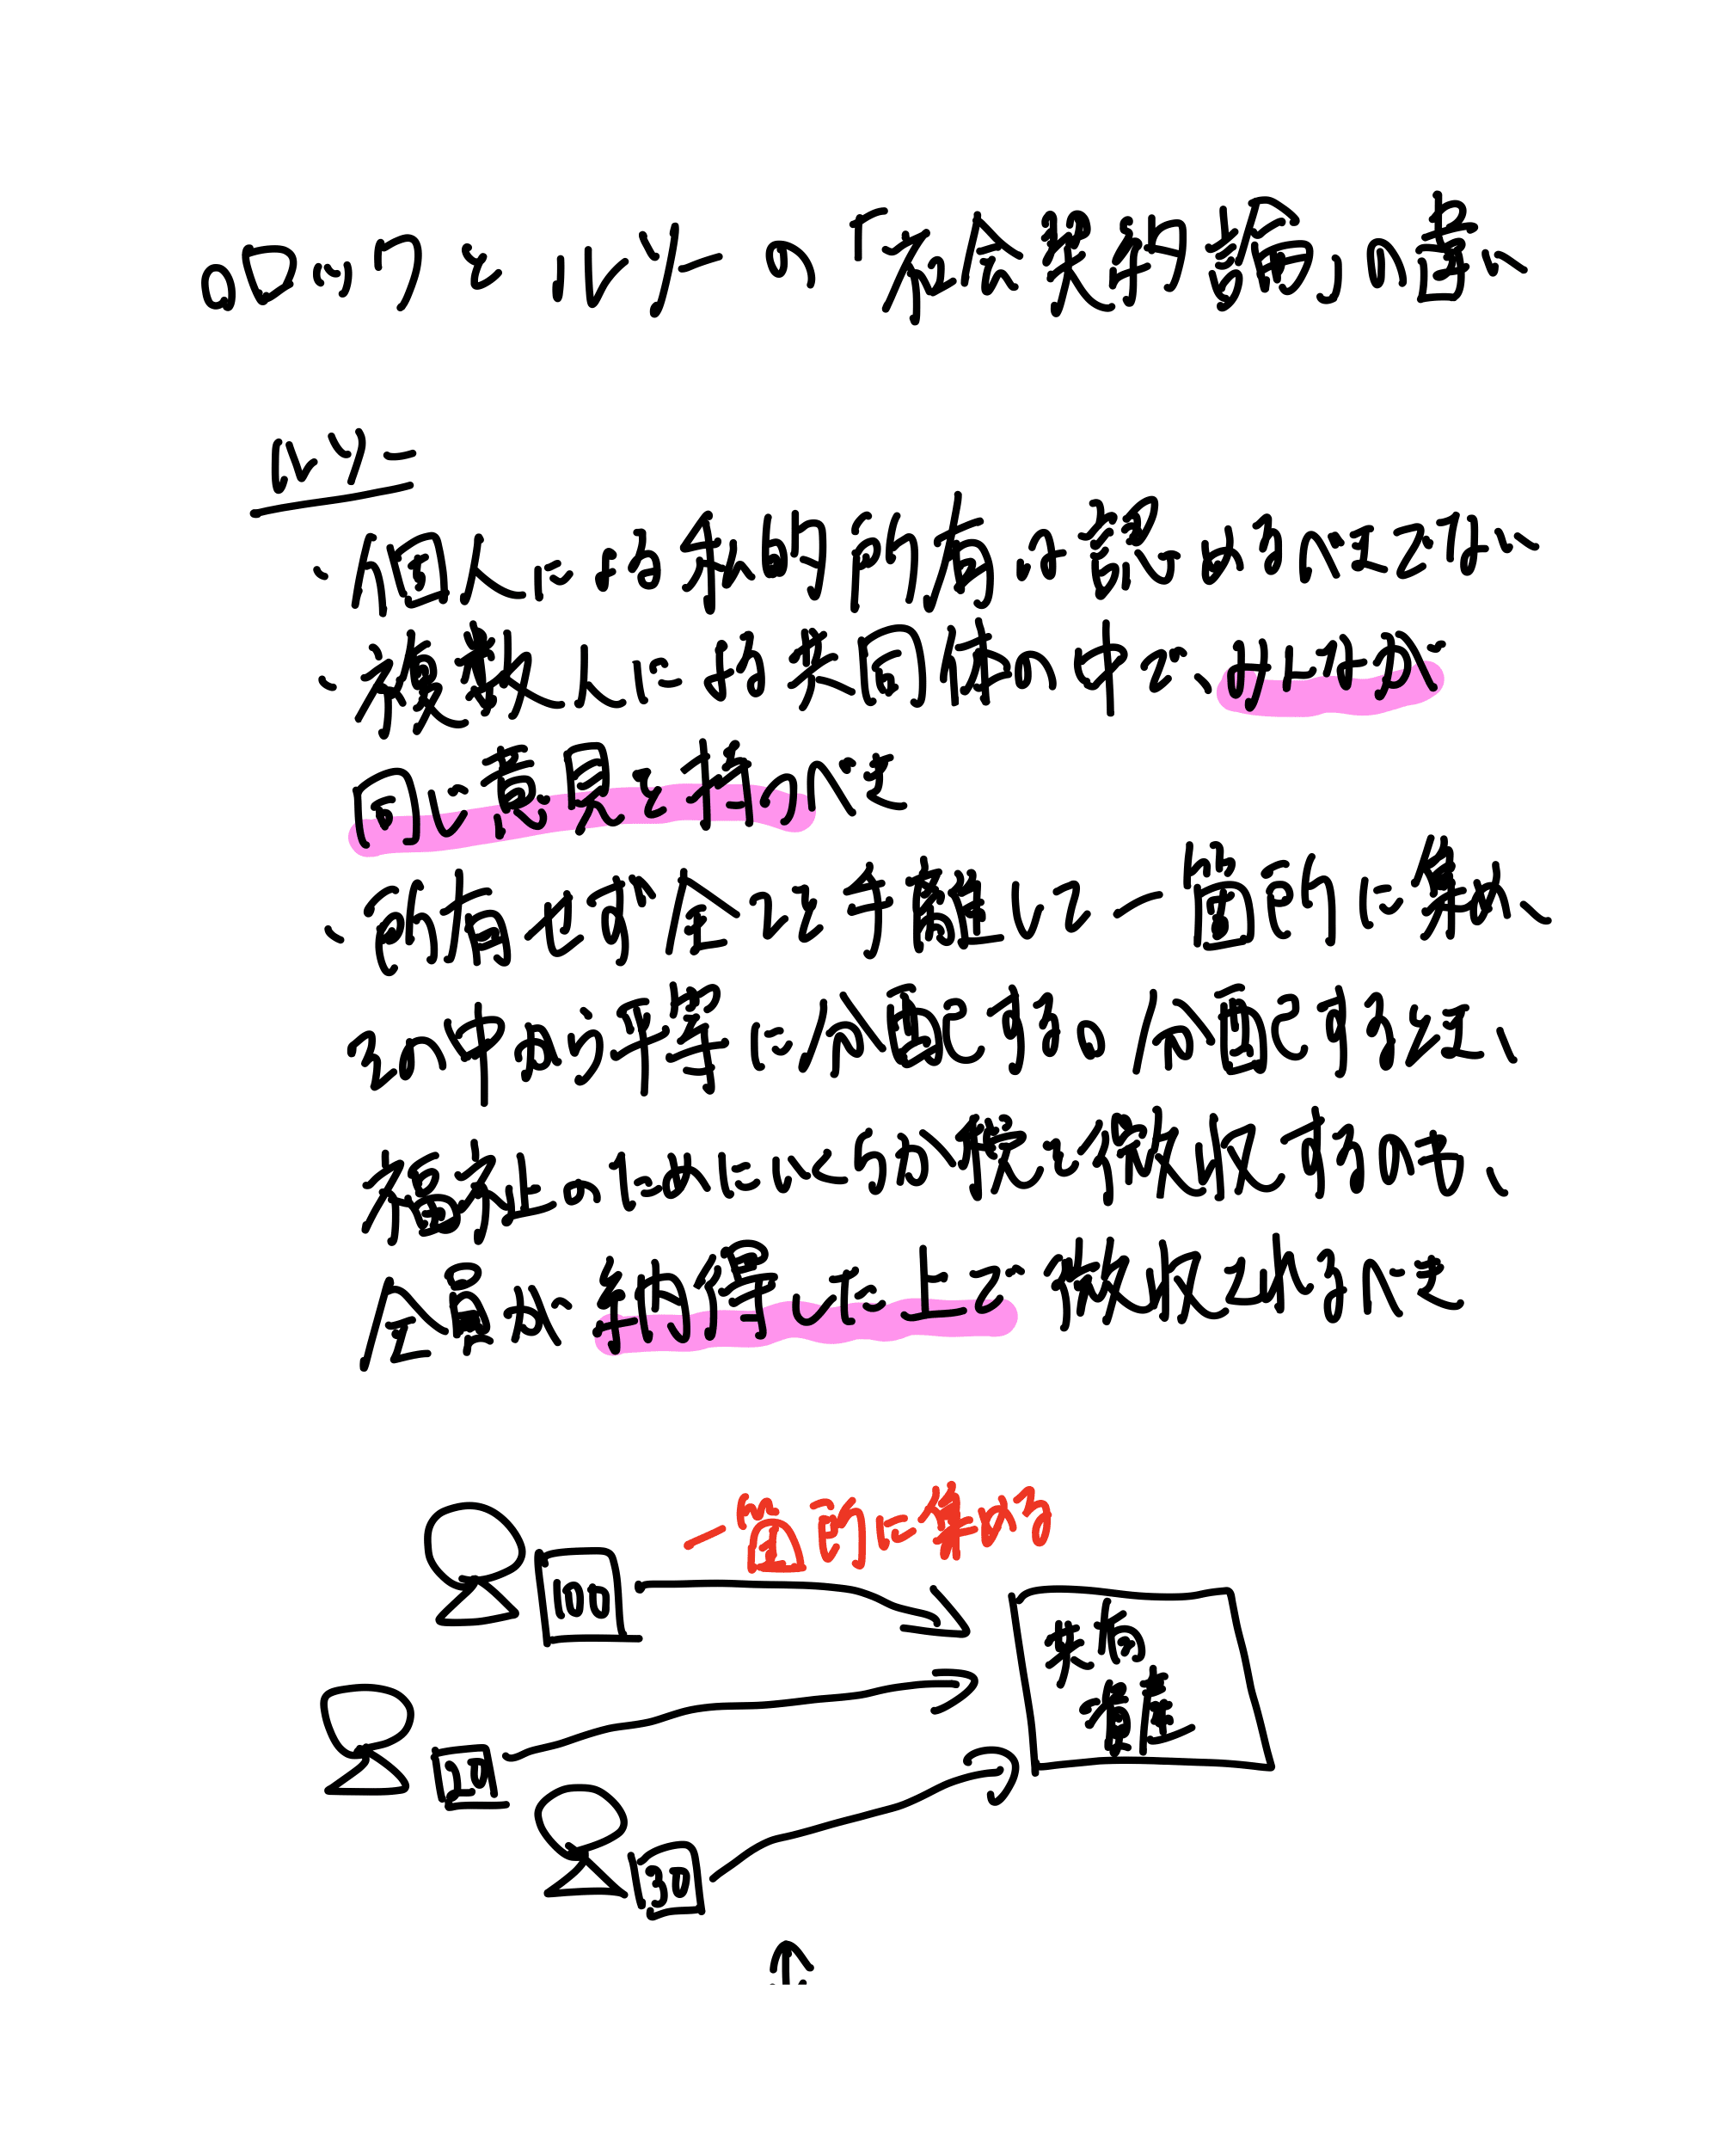 ○ロックとルソーの「社会契約説」の違い
ルソー
・個人による私的所有の考えを否定
・複数人による共同体の中で、みんなが
同じ意見を持つべき
・所有物は全て手離して一箇所に集め、
その中から平等に分配する。分配する上で、
福祉のために公的な機関が徴収するのも、
全員が納得した上で徴収されるべき
一箇所に集める
100
共有
資産
20
30
↑